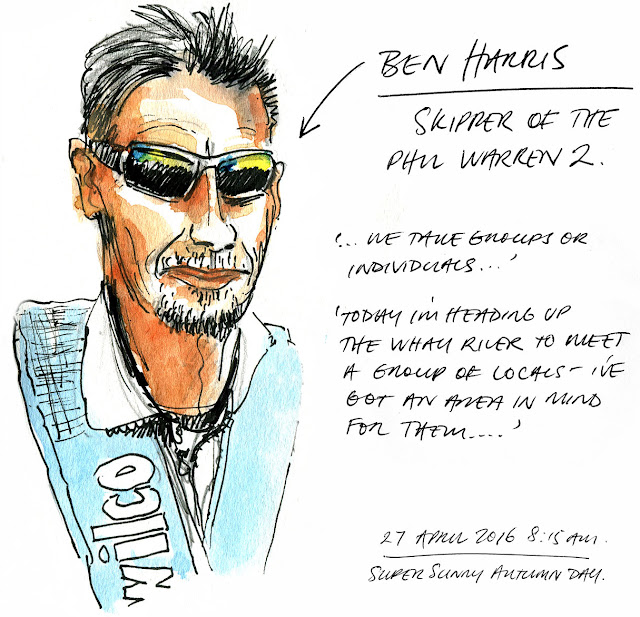 BEN HARRIS
SKIPPER OF THE
PHIL WARREN 2.
'... WE TAKE GROUPS OR
INDIVIDUALS...'
'TODAY I'M HEADING UP
THE WHAU RIVER TO MEET
A GROUP OF LOCALS - I'VE
GOT AN AREA IN MIND
FOR THEM....'
27 APRIL 2016 8:15 AM.
SUPER SUNNY AUTUMN DAY.
wilco